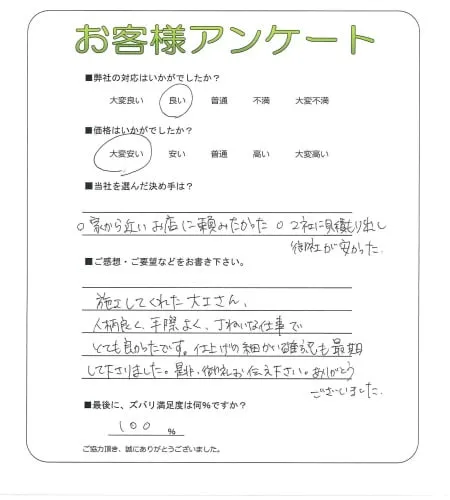 お客様アンケート
■弊社の対応はいかがでしたか？
大変良い 良い 普通 不満 大変不満
■価格はいかがでしたか？
大変安い 安い 普通 高い 大変高い
■当社を選んだ決め手は？
○家から近いお店に頼みたかった ○2社に見積もり出し
御社が安かった。
■ご感想・ご要望などをお書き下さい。
施工してくれた大工さん、
人柄良く、手際よく、丁ねいな仕事で
とても良かったです。仕上げの細かい
して下さりました。是非、御礼お伝え下さい。ありがとう
ございました。
■最後に、ズバリ満足度は何%ですか？
100 %
ご協力頂き、誠にありがとうございました。